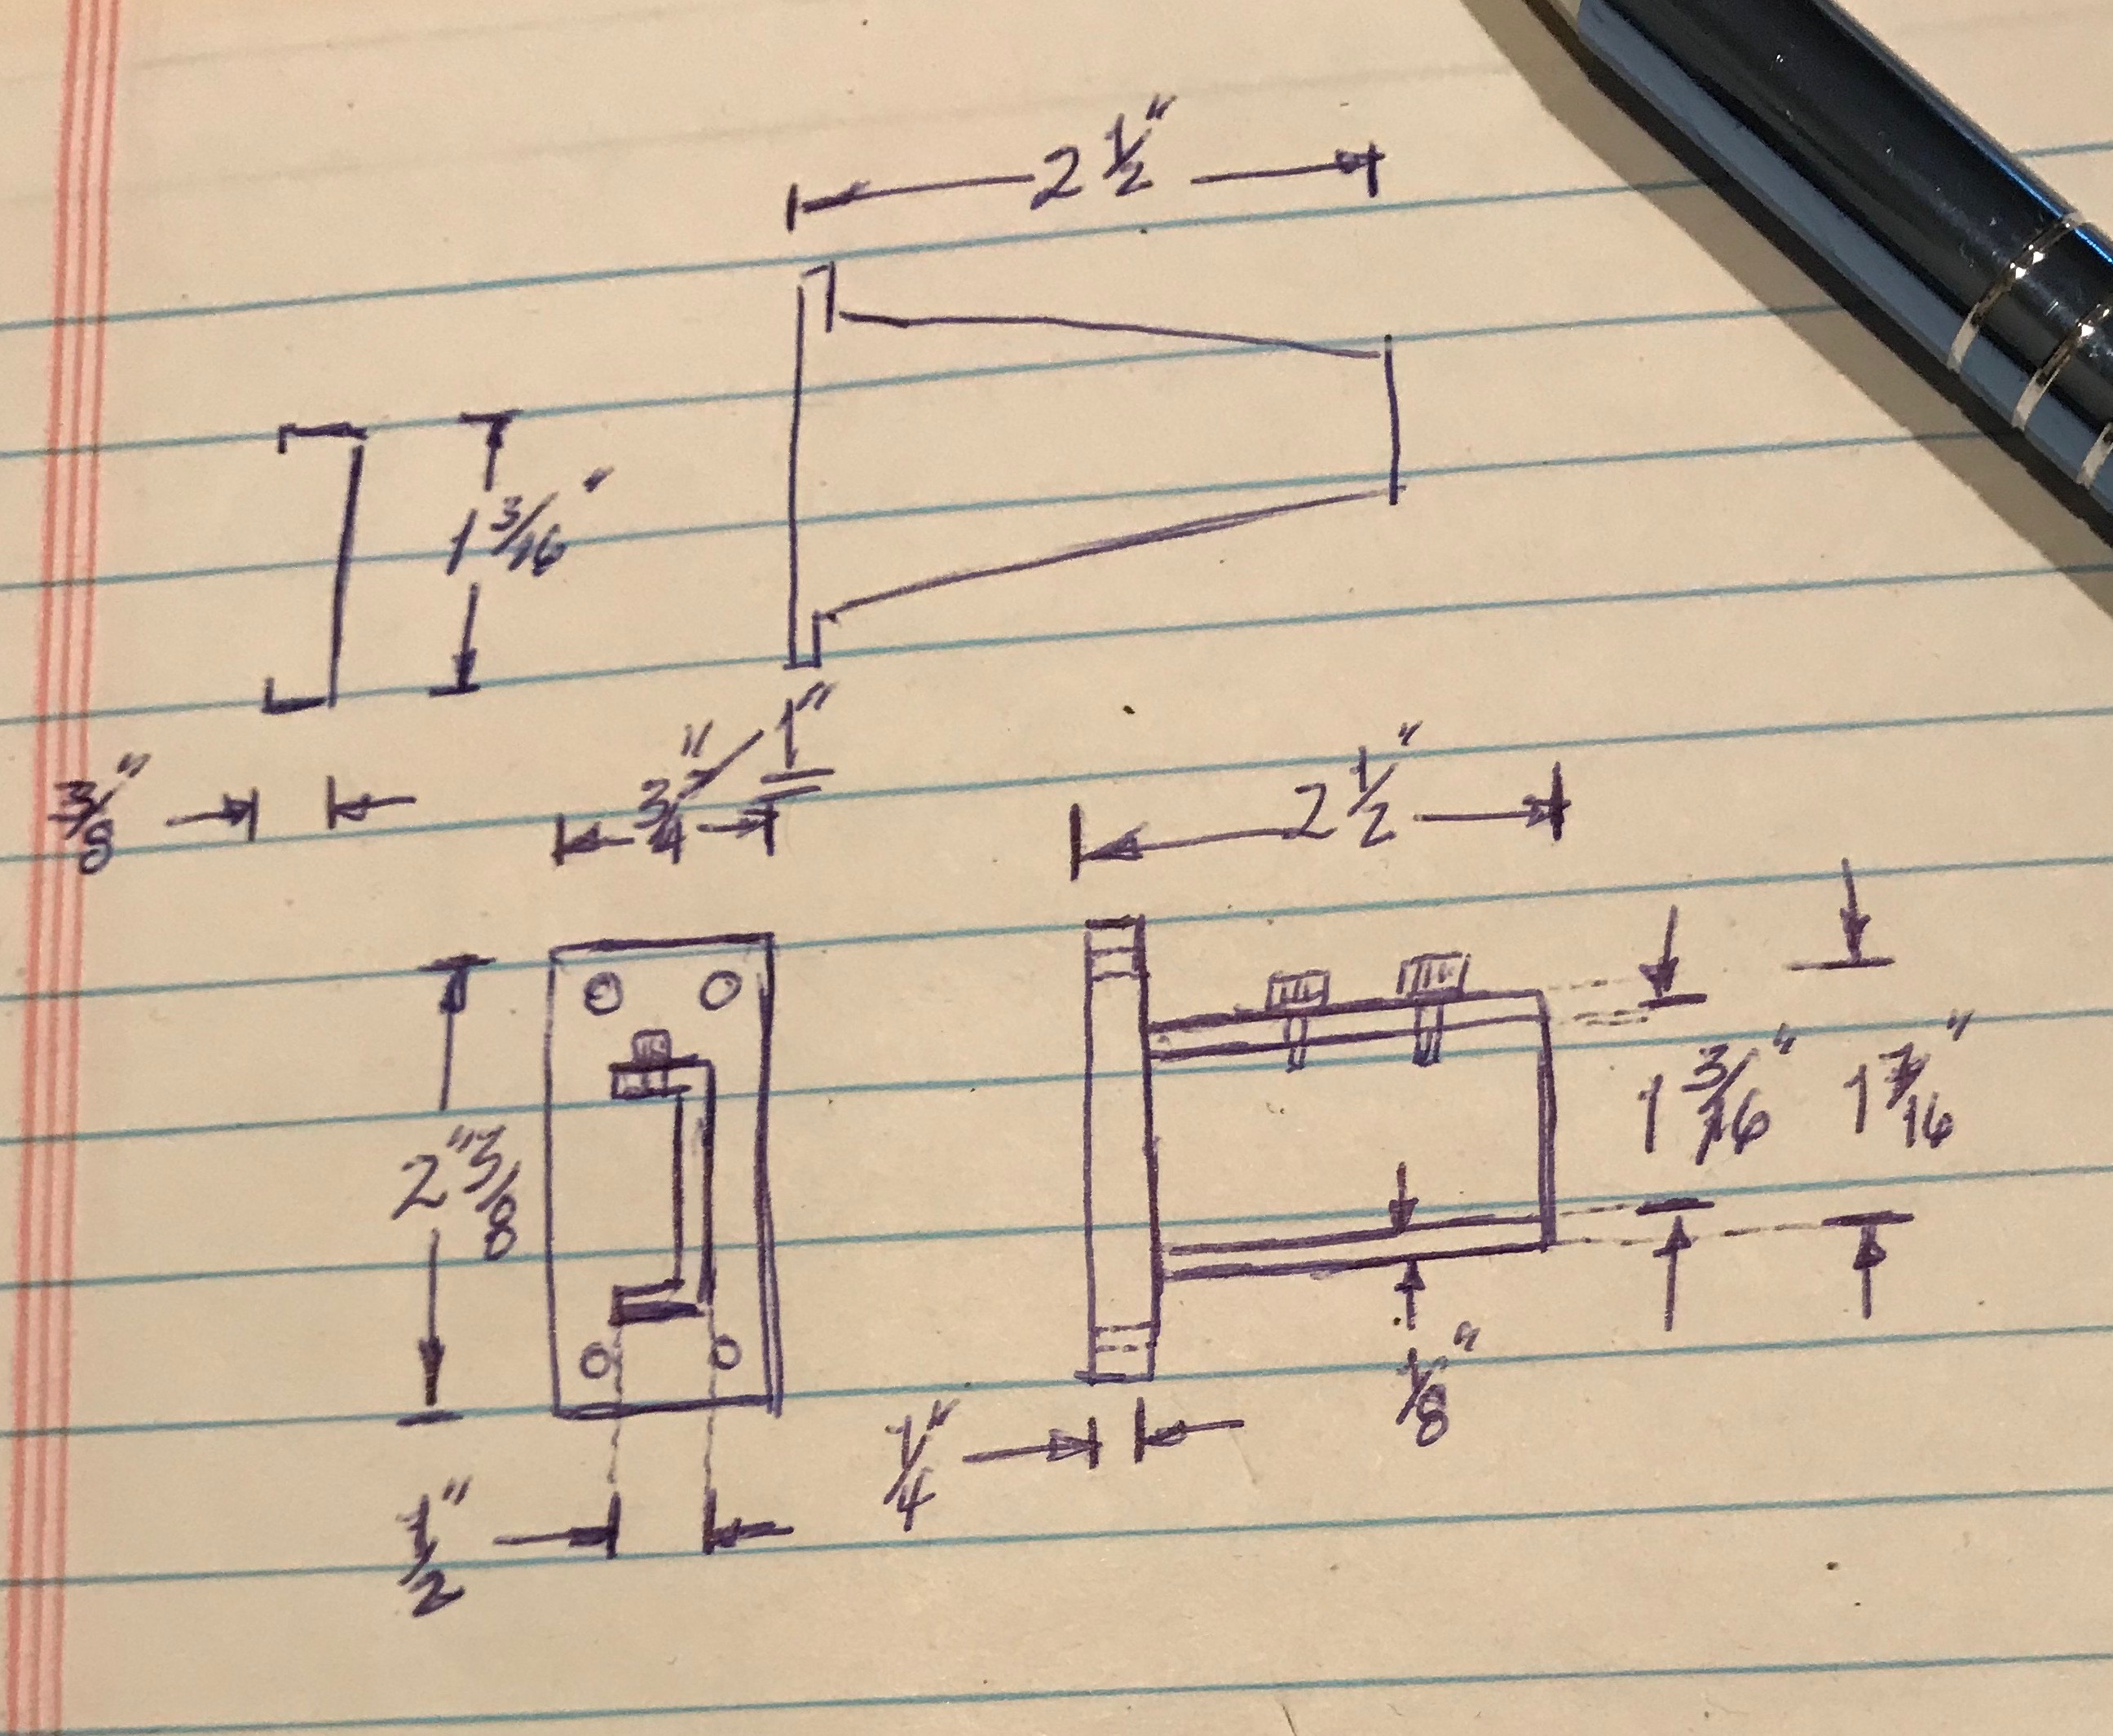 2 1/2"
1 3/16"
3/8"
3/4" / 1"
2 1/2"
1 3/16"
1 7/16"
2" 3/8
1/8"
1/4"
1/2"